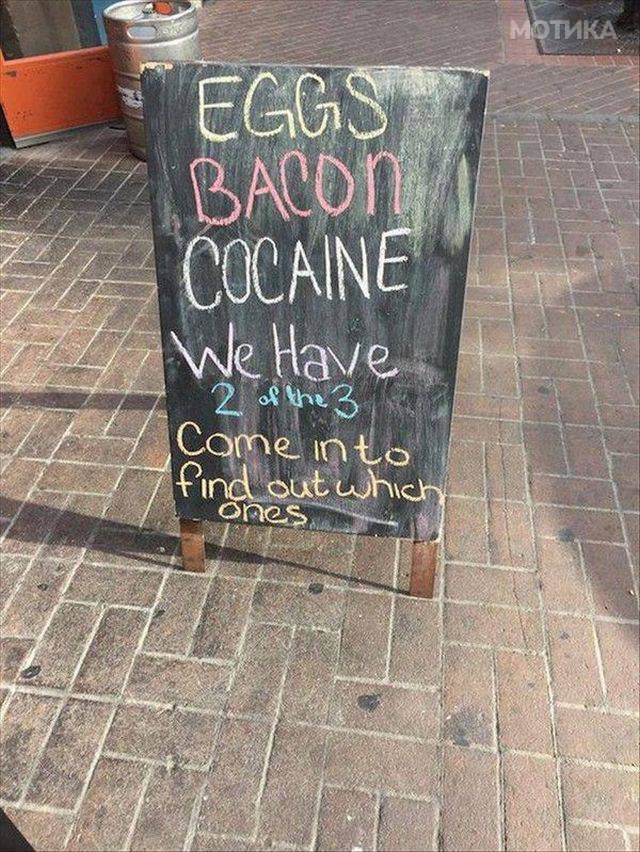 МОТИКА
EGGS
BACON
COCAINE
We Have
2 of the 3
Come in to
find out which
ones